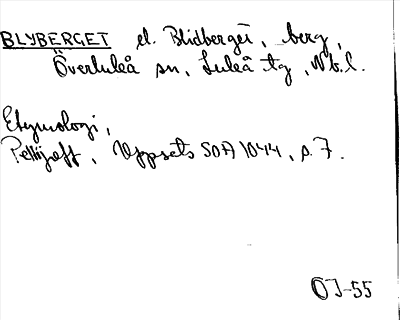 BLYBERGET el. Blidberget, berg,
Överluleå sn, Luleå tg, Nb.l.
Etymologi,
Pettijeff, Uppsats SOA 1044, s. 7.
OJ-55